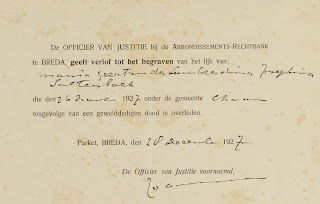 De OFFICIER VAN JUSTITIE bij de ARRONDISSEMENTS-RECHTBANK
te BREDA, geeft verlof tot het begraven van het lijk van:
Maria Geertruda Lambertina Josephina
die den 26 Decemb 1927 onder de gemeente Chaam
tengevolge van een gewelddadigen dood is overleden.
Parket, BREDA, den 28 Decemb 1927
De Officier van Justitie voornoemd,